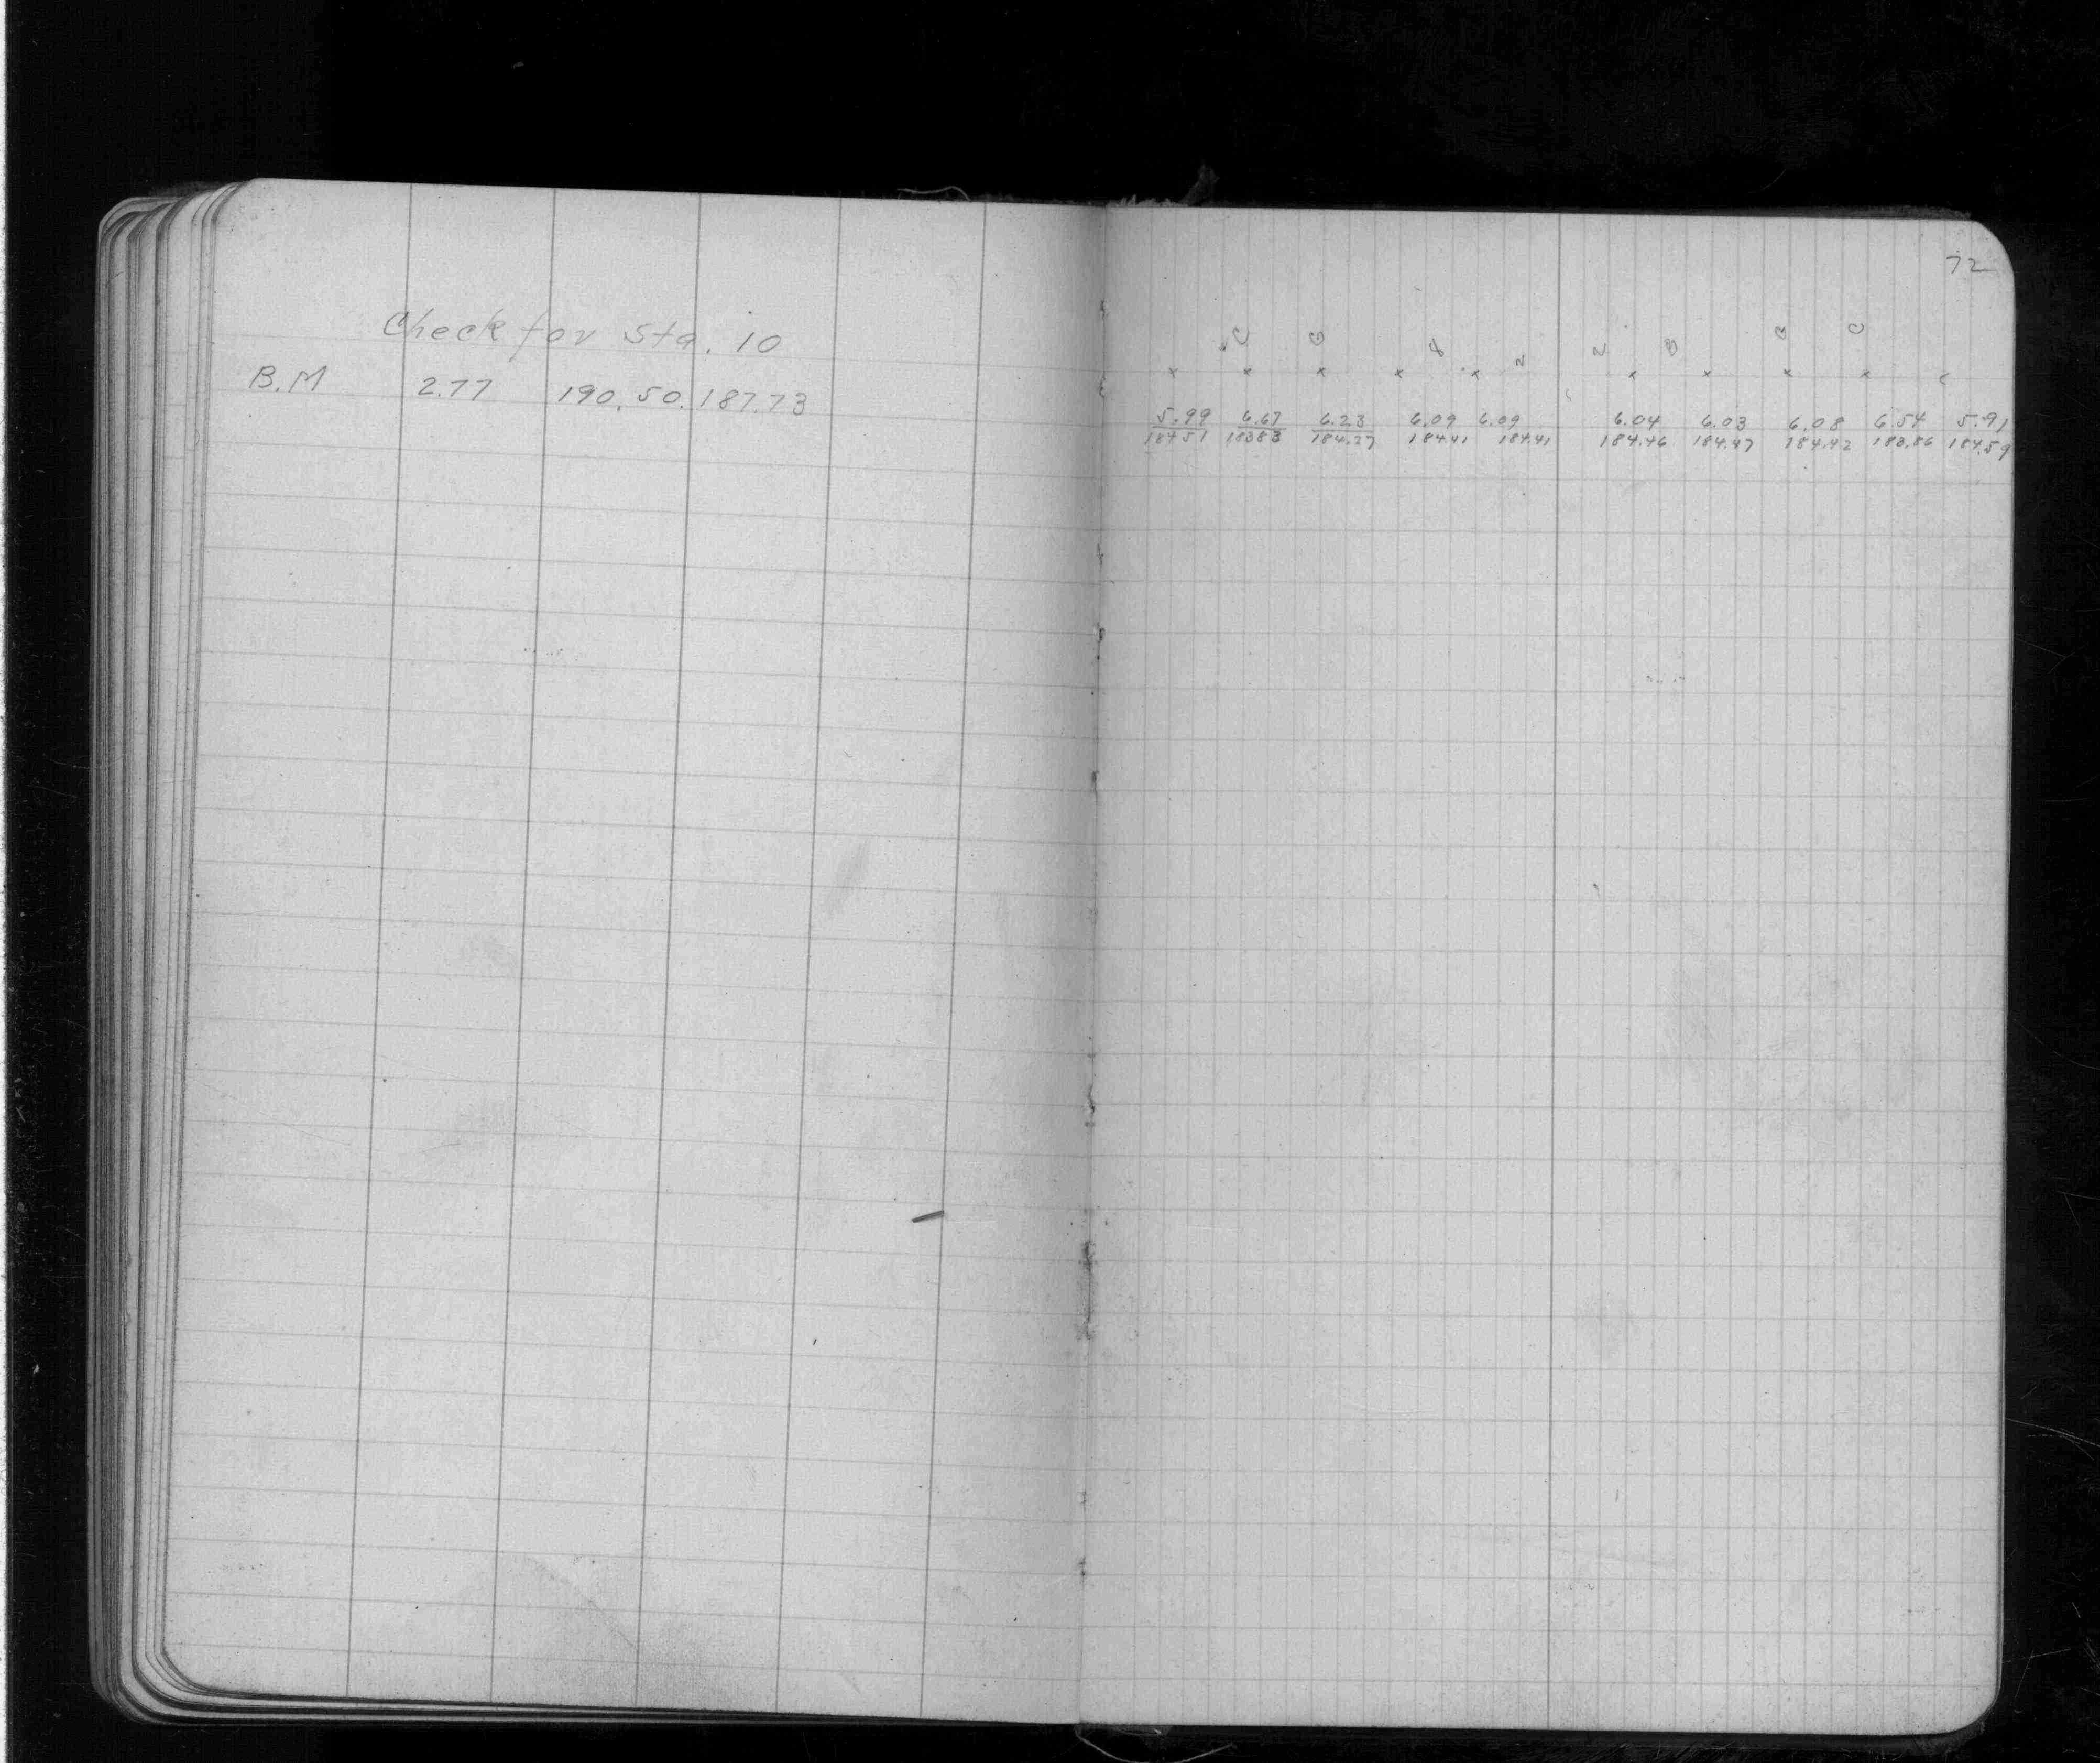 Check for Sta. 10
B.M 2.77 190.50. 187.73
72
C G 8 2 2 B G C
x x x x x x x x x
5.99 6.67 6.23 6.09 6.09 6.04 6.03 6.08 6.54 5.91
184.51 183.83 184.27 184.41 184.41 184.46 184.47 184.42 183.86 184.59